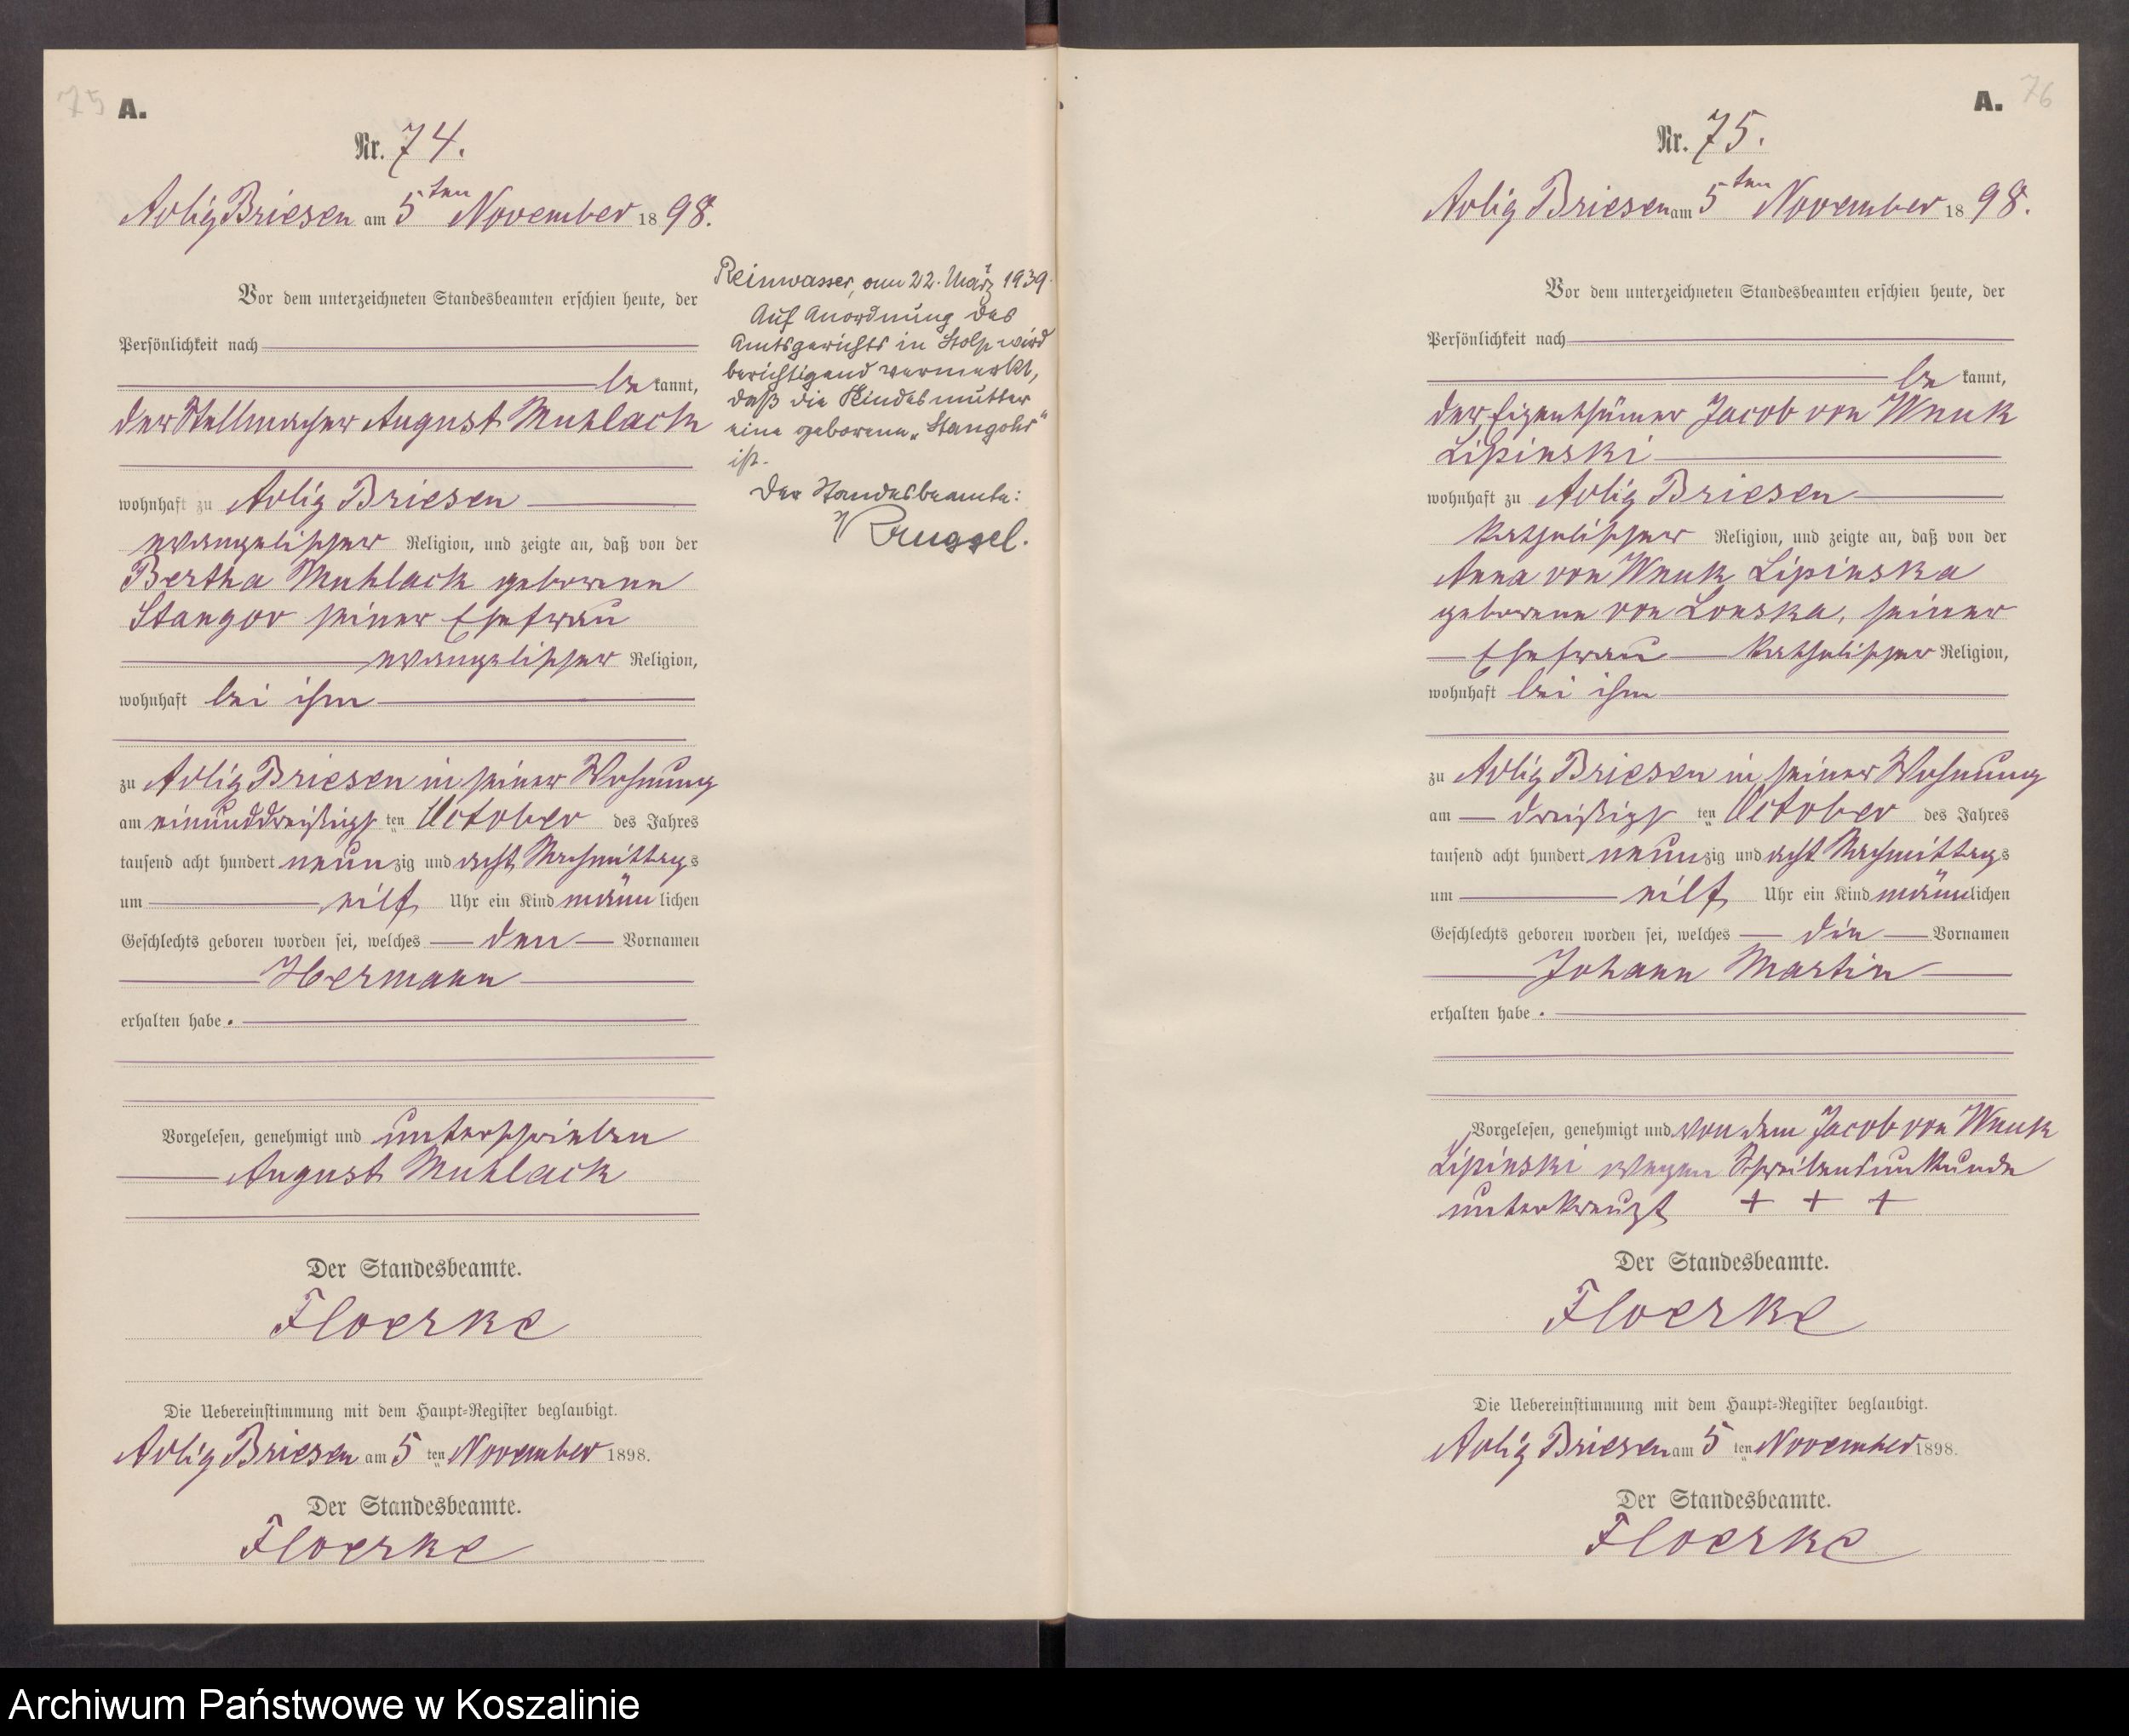 75 A.
Nr. 74.
Adlig Briesen am 5ten November 1898.
Vor dem unterzeichneten Standesbeamten erschien heute, der
Persönlichkeit nach
be kannt,
der Stellmacher August Muhlack
wohnhaft zu Adlig Briesen
evangelischer Religion, und zeigte an, daß von der
Bertha Muhlack geborene
Stangor seiner Ehefrau
evangelischer Religion,
wohnhaft bei ihm
zu Adlig Briesen in seiner Wohnung
am einunddreißigsten October des Jahres
tausend acht hundert neunzig und acht Nachmittags
um eilf Uhr ein Kind männlichen
Geschlechts geboren worden sei, welches den Vornamen
Hermann
erhalten habe.
Vorgelesen, genehmigt und unterschrieben
August Muhlack
Der Standesbeamte.
Floerke
Die Uebereinstimmung mit dem Haupt-Register beglaubigt.
Adlig Briesen am 5ten November 1898.
Der Standesbeamte.
Floerke
Reinwasser, am 22. März 1939.
Auf Anordnung des
Amtsgerichts in Stolp wird
berichtigend vermerkt,
daß die Kindesmutter
eine geborene „Stangohr"
ist.
Der Standesbeamte:
A. 76
Nr. 75.
Adlig Briesen am 5ten November 1898.
Vor dem unterzeichneten Standesbeamten erschien heute, der
Persönlichkeit nach
be kannt,
der Eigenthümer Jacob von Wnuk
Lipinski
wohnhaft zu Adlig Briesen
katholischer Religion, und zeigte an, daß von der
Anna von Wnuk Lipinska
geborene von Lonska, seiner
Ehefrau katholischer Religion,
wohnhaft bei ihm
zu Adlig Briesen in seiner Wohnung
am dreißigsten October des Jahres
tausend acht hundert neunzig und acht Nachmittags
um eilf Uhr ein Kind männlichen
Geschlechts geboren worden sei, welches die Vornamen
Johann Martin
erhalten habe.
Vorgelesen, genehmigt und von dem Jacob von Wnuk
Lipinski wegen Schreibensunkunde
unterkreuzt + + +
Der Standesbeamte.
Floerke
Die Uebereinstimmung mit dem Haupt-Register beglaubigt.
Adlig Briesen am 5ten November 1898.
Der Standesbeamte.
Floerke
Archiwum Państwowe w Koszalinie